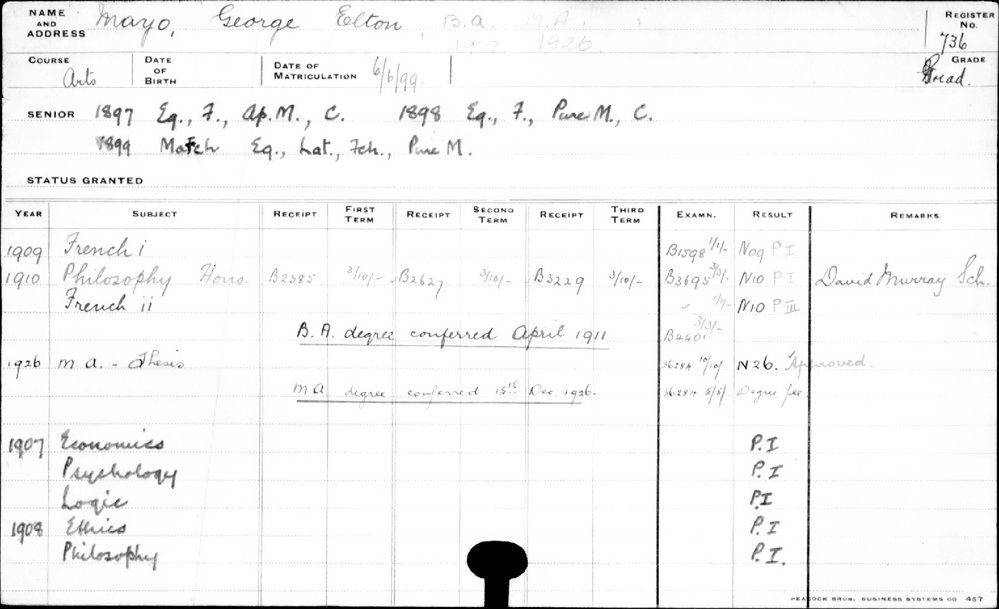 NAME AND ADDRESS Mayo, George Elton, B.A. M.A. REGISTER No. 736
1926
COURSE Arts DATE OF BIRTH DATE OF MATRICULATION 6/6/99 GRADE Grad.
SENIOR 1897 Eq., F., Ap. M., C. 1898 Eq., F., Pure M., C.
1899 Match Eq., Lat., Fch., Pure M.
STATUS GRANTED
YEAR SUBJECT RECEIPT FIRST TERM RECEIPT SECOND TERM RECEIPT THIRD TERM EXAMN. RESULT REMARKS
1909 French i B1598 1/1/- N09 P I
1910 Philosophy Hons. B2385 3/10/- B2627 3/10/- B3229 3/10/- B3695 3/3/- N10 P I David Murray Sch.
French ii 1/1/- N10 P III
B.A. degree conferred April 1911 B4401 3/3/-
1926 M.A. - Thesis 36284 10/10/ N26. Approved.
M A degree conferred 15th Dec. 1926. 36284 5/5/ Degree fee
1907 Economics P.I
Psychology P.I
Logic P.I
1908 Ethics P.I
Philosophy P.I.
PEACOCK BROS. BUSINESS SYSTEMS CO 467